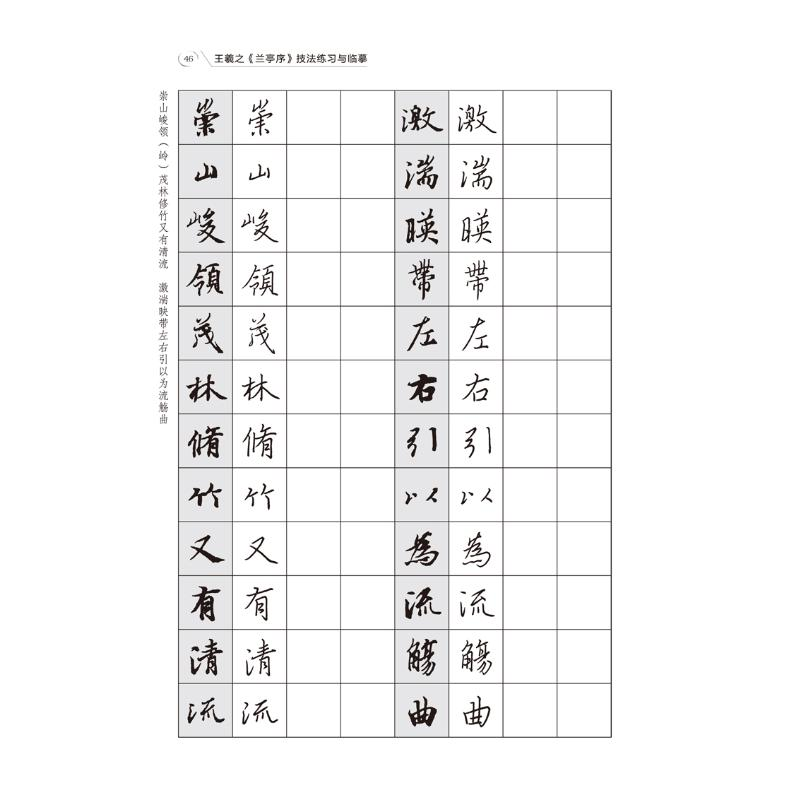 46 王羲之《兰亭序》技法练习与临摹
崇山峻领（岭）茂林修竹又有清流 激湍映带左右引以为流觞曲
崇 崇 激 激
山 山 湍 湍
峻 峻 暎 暎
領 領 帶 帶
茂 茂 左 左
林 林 右 右
脩 脩 引 引
竹 竹 以 以
又 又 為 為
有 有 流 流
清 清 觴 觴
流 流 曲 曲